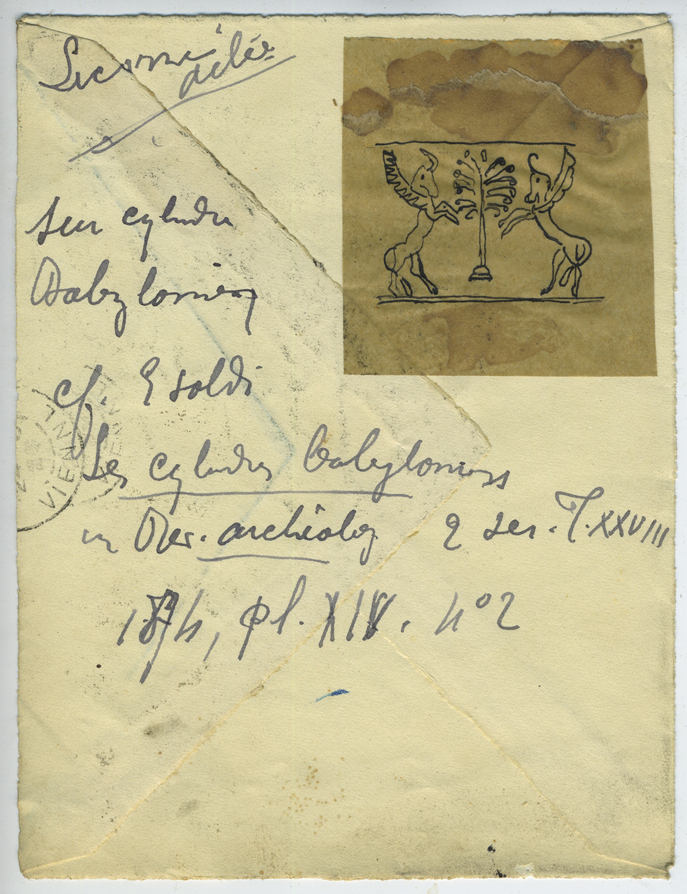 Licorne
ailée
sur cylindre
Babylonien
cf. E Soldi
Les cylindres babyloniens
in Rev. archéolog 2 ser. T. XXVIII
1874, pl. XIV. n° 2
VIEN